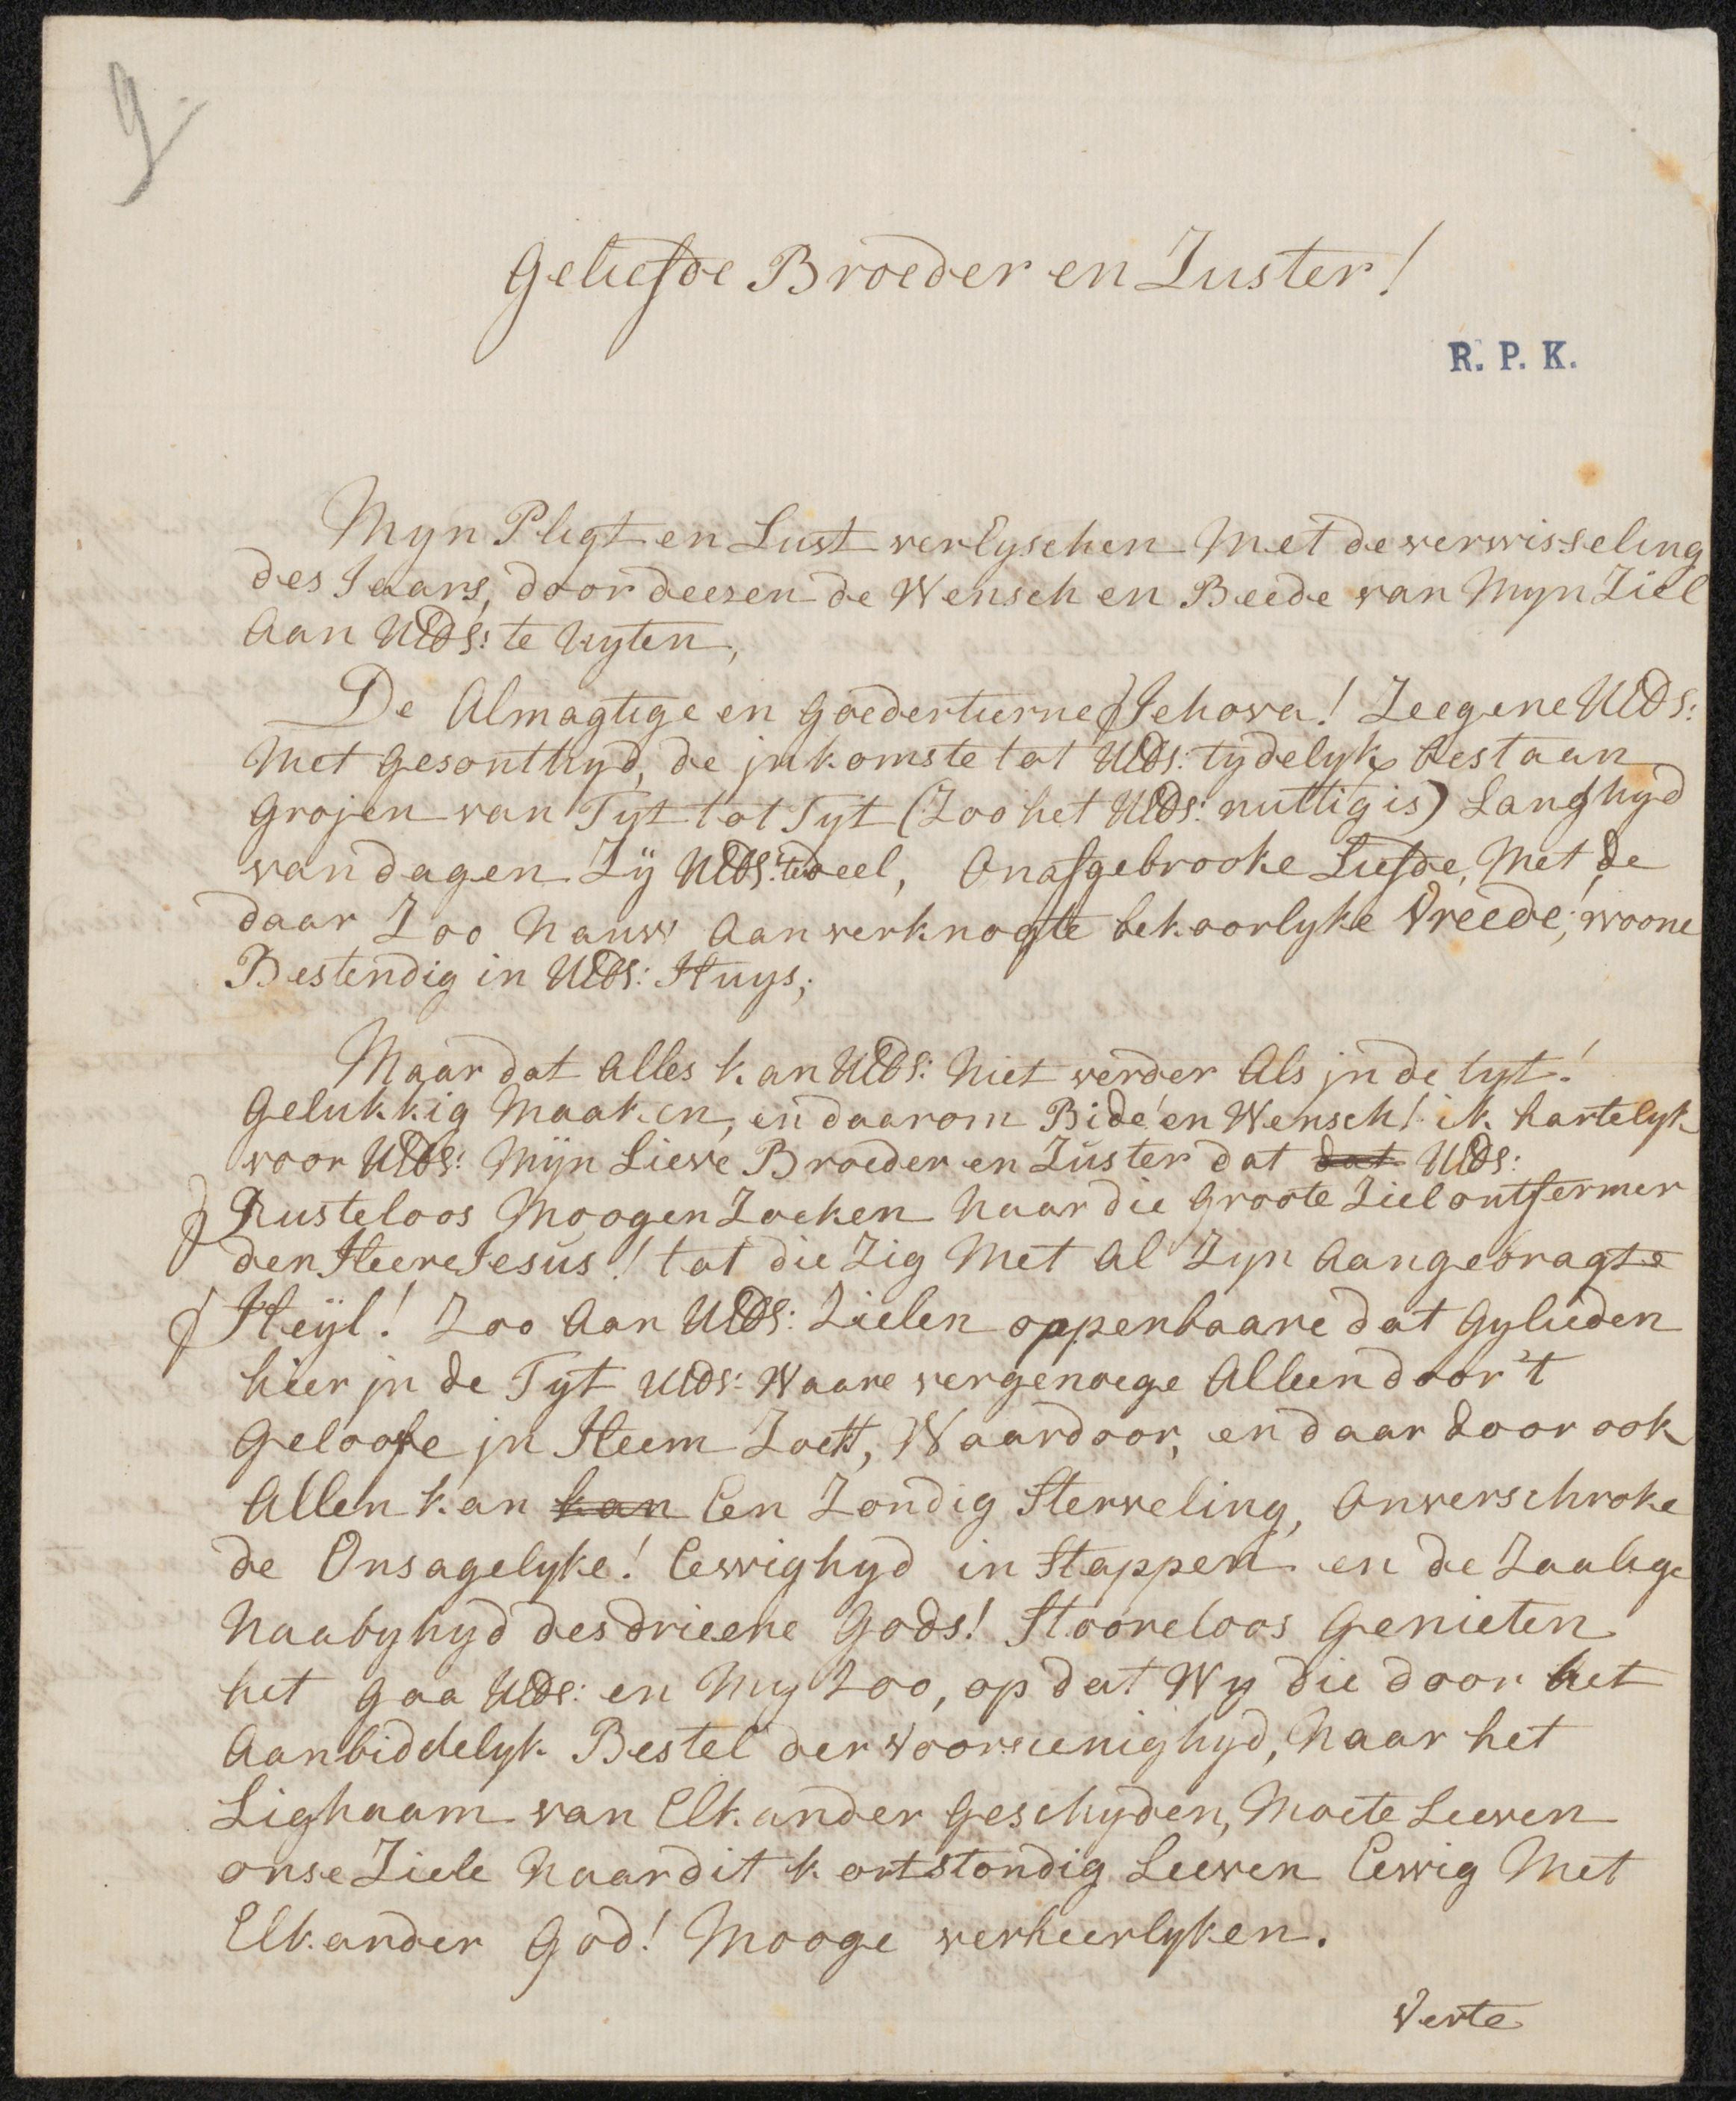 9
Geliefde Broeder en Zuster!
R. P. K.
Myn Pligt en Lust verlyschen Met de verwisseling
des Jaars, door deesen de Wensch en Beede van Myn Ziel
Aan UEDs: te Uyten,
De Almagtige en Goedertierne Jehova! Zeegene UEDs:
Met Gesonthyd, de jnkomste tot UEDs: tydelyk bestaan
Grojen van Tyt tot Tyt (Zoo het UEDs: nuttig is) Langhyd
van dagen Zÿ UEDs: deel, Onafgebrooke Liefde, Met de
daar Zoo Nauw Aan verknogte bekoorlyke Vreede, woone
Bestendig in UEDs: Huys;
Maar dat Alles kan UEDs: Niet verder Als jn de tyt!
Gelukkig Maaken, en daarom Bide en Wensch! ik hartelyk
voor UEDs: Mÿn Lieve Broeder en Zuster dat dat UEDs:
Rusteloos Moogen Zoeken Naar die Groote Ziel ontfermer
den Heere Jesus! tot die Zig Met Al Zyn Aangebragte
Heÿl! Zoo Aan UEDs: Zielen oppenbaare dat Gylieden
hier jn de Tyt UEDs: Waare vergenoege Alleen door 't
Geloofe jn Heem Zoekt, Waardoor, en daar door ook
Allen kan kan Een Zondig Sterveling, Onverschroke
de Onsagelyke! Eewighyd in Stappen en de Zaalige
Naabyhyd des drieene Gods! Stooreloos Genieten
het gaa UEDs: en My Zoo, op dat Wy die door het
Aanbiddelyk Bestel der Voorsienighyd, Naar het
Lighaam van Elkander Geschyden, Moete Leeven
onse Ziele Naar dit kortstondig Leeven Eewig Met
Elkander God! Mooge verheerlyken.
Verte